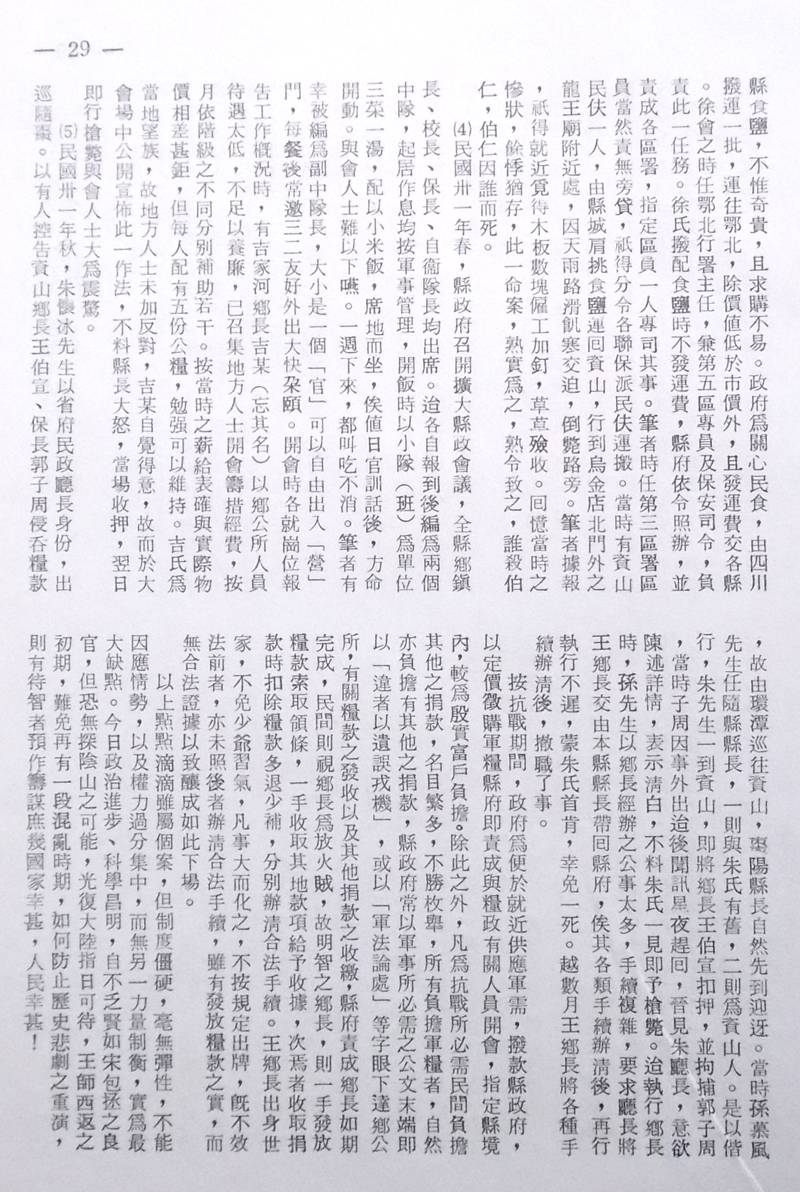 — 29 —
縣食鹽，不惟奇貴，且求購不易。政府為關心民食，由四川
撥運一批，運往鄂北，除價值低於市價外，且發運費交各縣
。徐會之時任鄂北行署主任，兼第五區專員及保安司令，負
責此一任務。徐氏撥配食鹽時不發運費，縣府依令照辦，並
責成各區署，指定區員一人專司其事。筆者時任第三區署區
員當然責無旁貸，祇得分令各聯保派民伕運搬。當時有資山
民伕一人，由縣城肩挑食鹽運回資山，行到烏金店北門外之
龍王廟附近處，因天雨路滑飢寒交迫，倒斃路旁。筆者據報
，祇得就近覓得木板數塊僱工加釘，草草殮收。回憶當時之
慘狀，餘悸猶存，此一命案，熟實為之，熟令致之，誰殺伯
仁，伯仁因誰而死。
⑷民國卅一年春，縣政府召開擴大縣政會議，全縣鄉鎮
長、校長、保長、自衞隊長均出席。迨各自報到後編為兩個
中隊，起居作息均按軍事管理，開飯時以小隊（班）為單位
三菜一湯，配以小米飯，席地而坐，俟值日官訓話後，方命
開動。與會人士難以下嚥。一週下來，都叫吃不消。筆者有
幸被編為副中隊長，大小是一個「官」可以自由出入「營」
門，每餐後常邀三二友好外出大快朶頤。開會時各就崗位報
告工作概況時，有吉家河鄉長吉某（忘其名）以鄉公所人員
待遇太低，不足以養廉，已召集地方人士開會籌措經費，按
月依階級之不同分別補助若干。按當時之薪給表確與實際物
價相差甚鉅，但每人配有五份公糧，勉強可以維持。吉氏為
當地望族，故地方人士未加反對，吉某自覺得意，故而於大
會場中公開宣佈此一作法，不料縣長大怒，當場收押，翌日
即行槍斃與會人士大為震驚。
⑸民國卅一年秋，朱懷冰先生以省府民政廳長身份，出
巡隨棗。以有人控告資山鄉長王伯宣、保長郭子周侵吞糧款
，故由環潭巡往資山，棗陽縣長自然先到迎迓。當時孫慕風
先生任隨縣縣長，一則與朱氏有舊，二則為資山人。是以偕
行，朱先生一到資山，即將鄉長王伯宣扣押，並拘捕郭子周
，當時子周因事外出迨後聞訊星夜趕回，晉見朱廳長，意欲
陳述詳情，表示清白，不料朱氏一見即予槍斃。迨執行鄉長
時，孫先生以鄉長經辦之公事太多，手續複雜，要求廳長將
王鄉長交由本縣縣長帶回縣府，俟其各類手續辦清後，再行
執行不遲，蒙朱氏首肯，幸免一死。越數月王鄉長將各種手
續辦清後，撤職了事。
按抗戰期間，政府為便於就近供應軍需，撥款縣政府，
以定價徵購軍糧縣府即責成與糧政有關人員開會，指定縣境
內，較為殷實富戶負擔。除此之外，凡為抗戰所必需民間負擔
其他之捐款，名目繁多，不勝枚舉，所有負擔軍糧者，自然
亦負擔有其他之捐款，縣政府常以軍事所必需之公文末端即
以「違者以遺誤戎機」，或以「軍法論處」等字眼下達鄉公
所，有關糧款之發收以及其他捐款之收繳，縣府責成鄉長如期
完成，民間則視鄉長為放火賊，故明智之鄉長，則一手發放
糧款索取領條，一手收取其他款項給予收據，次焉者收取捐
款時扣除糧款多退少補，分別辦清合法手續。王鄉長出身世
家，不免少爺習氣，凡事大而化之，不按規定出牌，旣不效
法前者，亦未照後者辦清合法手續，雖有發放糧款之實，而
無合法證據以致釀成如此下場。
以上點點滴滴雖屬個案，但制度僵硬，毫無彈性，不能
因應情勢，以及權力過分集中，而無另一力量制衡，實為最
大缺點。今日政治進步、科學昌明，自不乏賢如宋包拯之良
官，但恐無探陰山之可能，光復大陸指日可待，王師西返之
初期，難免再有一段混亂時期，如何防止歷史悲劇之重演，
則有待智者預作籌謀庶幾國家幸甚，人民幸甚！